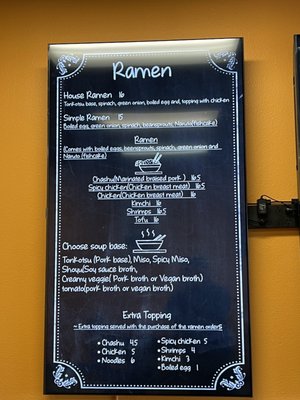 Ramen
House Ramen 16
Tonkotsu base, spinach, green onion, boiled egg and, topping with chicken
Simple Ramen 15
Boiled egg, green onion, spinach, beansprouts, Naruto(fishcake)
Ramen
(Comes with boiled eggs, beansprouts, spinach, green onion and
Naruto (fishcake)
Chashu(Marinated braised pork ) 16.5
Spicy chicken(Chicken breast meat) 16.5
Chicken(Chicken breast meat) 16
Kimchi 16
Shrimps 16.5
Tofu 16
Choose soup base:
Tonkotsu (Pork base), Miso, Spicy Miso,
Shoyu(Soy sauce broth,
Creamy veggie( Pork broth or Vegan broth)
tomato(pork broth or vegan broth)
Extra Topping
~ Extra topping served with the purchase of the ramen orders
• Chashu 4.5
• Chicken 5
• Noodles 6
• Spicy chicken 5
• Shrimps 4
• Kimchi 3
• Boiled egg 1